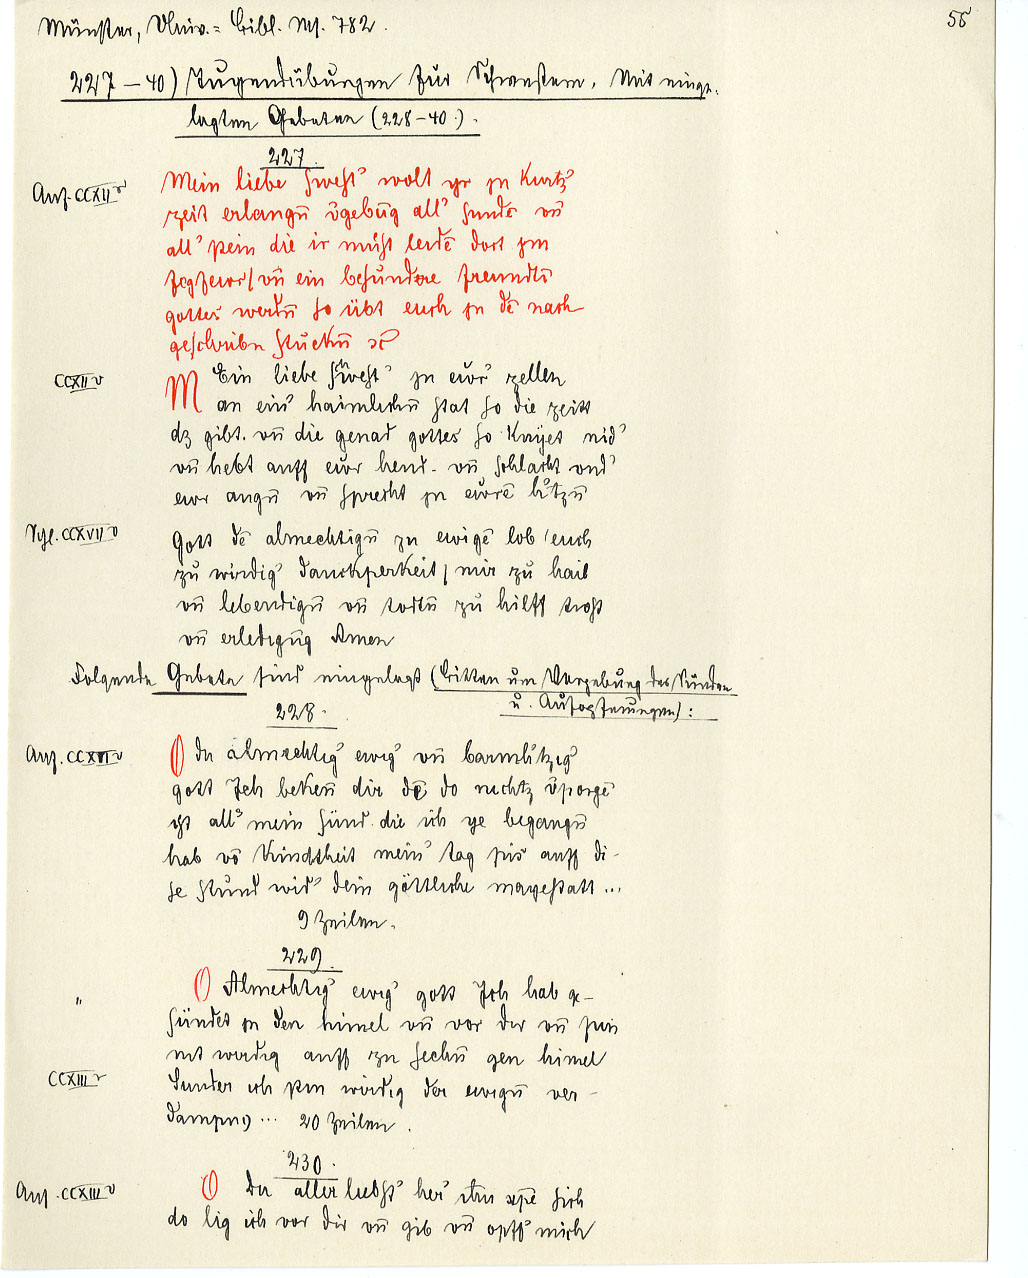 Münster, Univ.=Bibl. Ms. 782.
56
227–40) Tugendübungen für Schwestern. Mit einge-
legten Gebeten (228–40).
227.
Anf. CCXII r
Mein liebe swest' wolt yr jn kurtz'
zeit erlangn̄ v̄gebūg all' sunde vn̄
all' pein die ir müst leidē dort jm
fegfewr / vn̄ ein besundere freundī
gottes werdn̄ so übt euch jn dē nach
geschribn stuckn̄ ꝛc
CCXII v
MEin liebe swest' jn ewr' zellen
an ein' haimlichn̄ stat so die zeitt
dz gibt. vn̄ die genad gottes so knÿet nid'
vn̄ hebt auff ewr hend. vn̄ schlacht vnd'
ewr augn̄ vn̄ sprecht jn ewrē h'tzn̄
Schl. CCXVII v
Gott dē almechtign̄ zu ewigē lob / euch
zu wirdig' danckperkeit / mir zu hail
vn̄ lebendign̄ vn̄ todtn̄ zu hilff trost
vn̄ erledigūg Amen
Folgende Gebete sind eingelegt (Bitten um Vergebung der Sünden
u. Aufopferungen):
228.
Anf. CCXVI v
O du almechtig' ewig' vn̄ barmh'tzig'
gott Jch bekeñ dir dē do nichtz v̄porgē
ist all' mein sünd. die ich ye begangn̄
hab vō kindtheit mein' tag pis auff di-
se stund wid' dein göttliche mayestatt ...
9 Zeilen.
229.
"
O Almechtig' ewig' gott Jch hab ge-
sündet jn den himel vn̄ vor dir vn̄ pin
nit wirdig auff zu sechn̄ gen himel
CCXIII r
Sunder ich pin wirdig der ewign̄ ver-
dampnꝰ ... 20 Zeilen.
230.
Anf. CCXIII v
O Du aller liebst' her' ihu xpē sich
do lig ich vor dir vn̄ gib vn̄ opff' mich